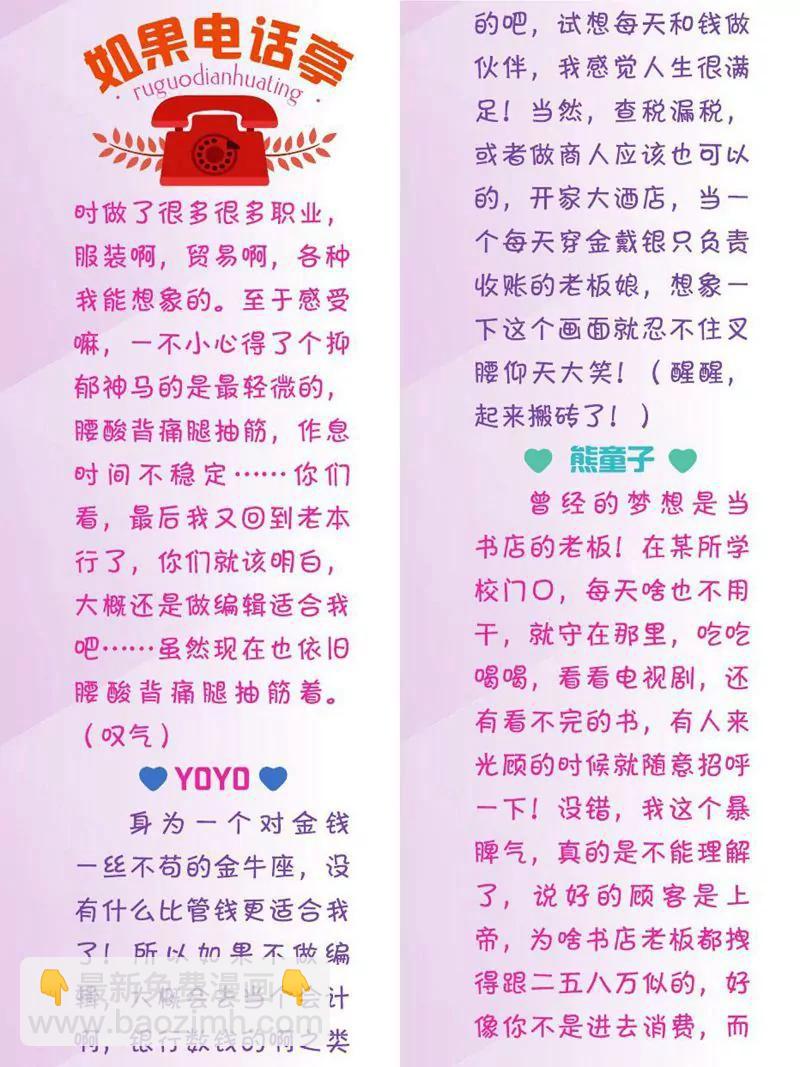 如果电话亭
ruguodianhuating
时做了很多很多职业，
服装啊，贸易啊，各种
我能想象的。至于感受
嘛，一不小心得了个抑
郁神马的是最轻微的，
腰酸背痛腿抽筋，作息
时间不稳定……你们
看，最后我又回到老本
行了，你们就该明白，
大概还是做编辑适合我
吧……虽然现在也依旧
腰酸背痛腿抽筋着。
（叹气）
YOYO
身为一个对金钱
一丝不苟的金牛座，没
有什么比管钱更适合我
了！所以如果不做编
辑，大概会去当个会计
啊，银行数钱的啊之类
最新免费漫画
www.baozimh.com
的吧，试想每天和钱做
伙伴，我感觉人生很满
足！当然，查税漏税，
或者做商人应该也可以
的，开家大酒店，当一
个每天穿金戴银只负责
收账的老板娘，想象一
下这个画面就忍不住叉
腰仰天大笑！（醒醒，
起来搬砖了！）
熊童子
曾经的梦想是当
书店的老板！在某所学
校门口，每天啥也不用
干，就守在那里，吃吃
喝喝，看看电视剧，还
有看不完的书，有人来
光顾的时候就随意招呼
一下！没错，我这个暴
脾气，真的是不能理解
了，说好的顾客是上
帝，为啥书店老板都拽
得跟二五八万似的，好
像你不是进去消费，而